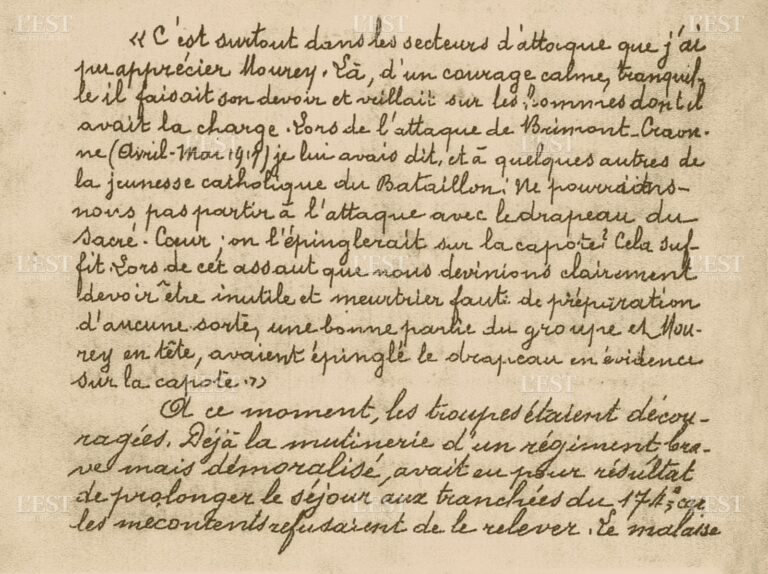 « C'est surtout dans les secteurs d'attaque que j'ai
pu apprécier Mourey. Là, d'un courage calme, tranquil-
le il faisait son devoir et veillait sur les hommes dont il
avait la charge. Lors de l'attaque de Brimont-Craon-
ne (Avril-Mai 1917) je lui avais dit, et à quelques autres de
la jeunesse catholique du Bataillon: Ne pourrions-
nous pas partir à l'attaque avec le drapeau du
Sacré-Cœur; on l'épinglerait sur la capote? Cela suf-
fit. Lors de cet assaut que nous devinions clairement
devoir être inutile et meurtrier faute de préparation
d'aucune sorte, une bonne partie du groupe et Mou-
rey en tête, avaient épinglé le drapeau en évidence
sur la capote.»
A ce moment, les troupes étaient décou-
ragées. Déjà la mutinerie d'un régiment bra-
ve mais démoralisé, avait eu pour résultat
de prolonger le séjour aux tranchées du 174e, car
les mécontents refusaient de le relever. Le malaise